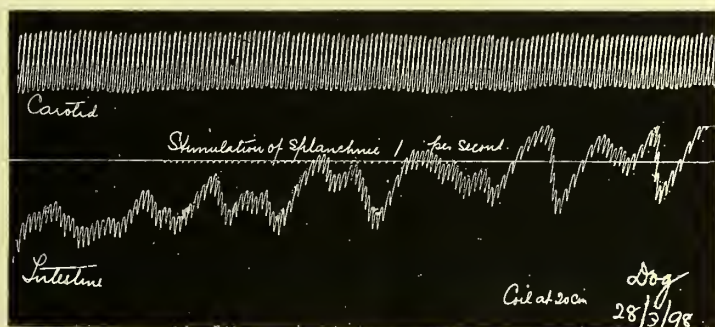 Carotid
Stimulation of Splanchnic 1 per second.
Intestine
Coil at 20 Cm
Dog
28/3/98